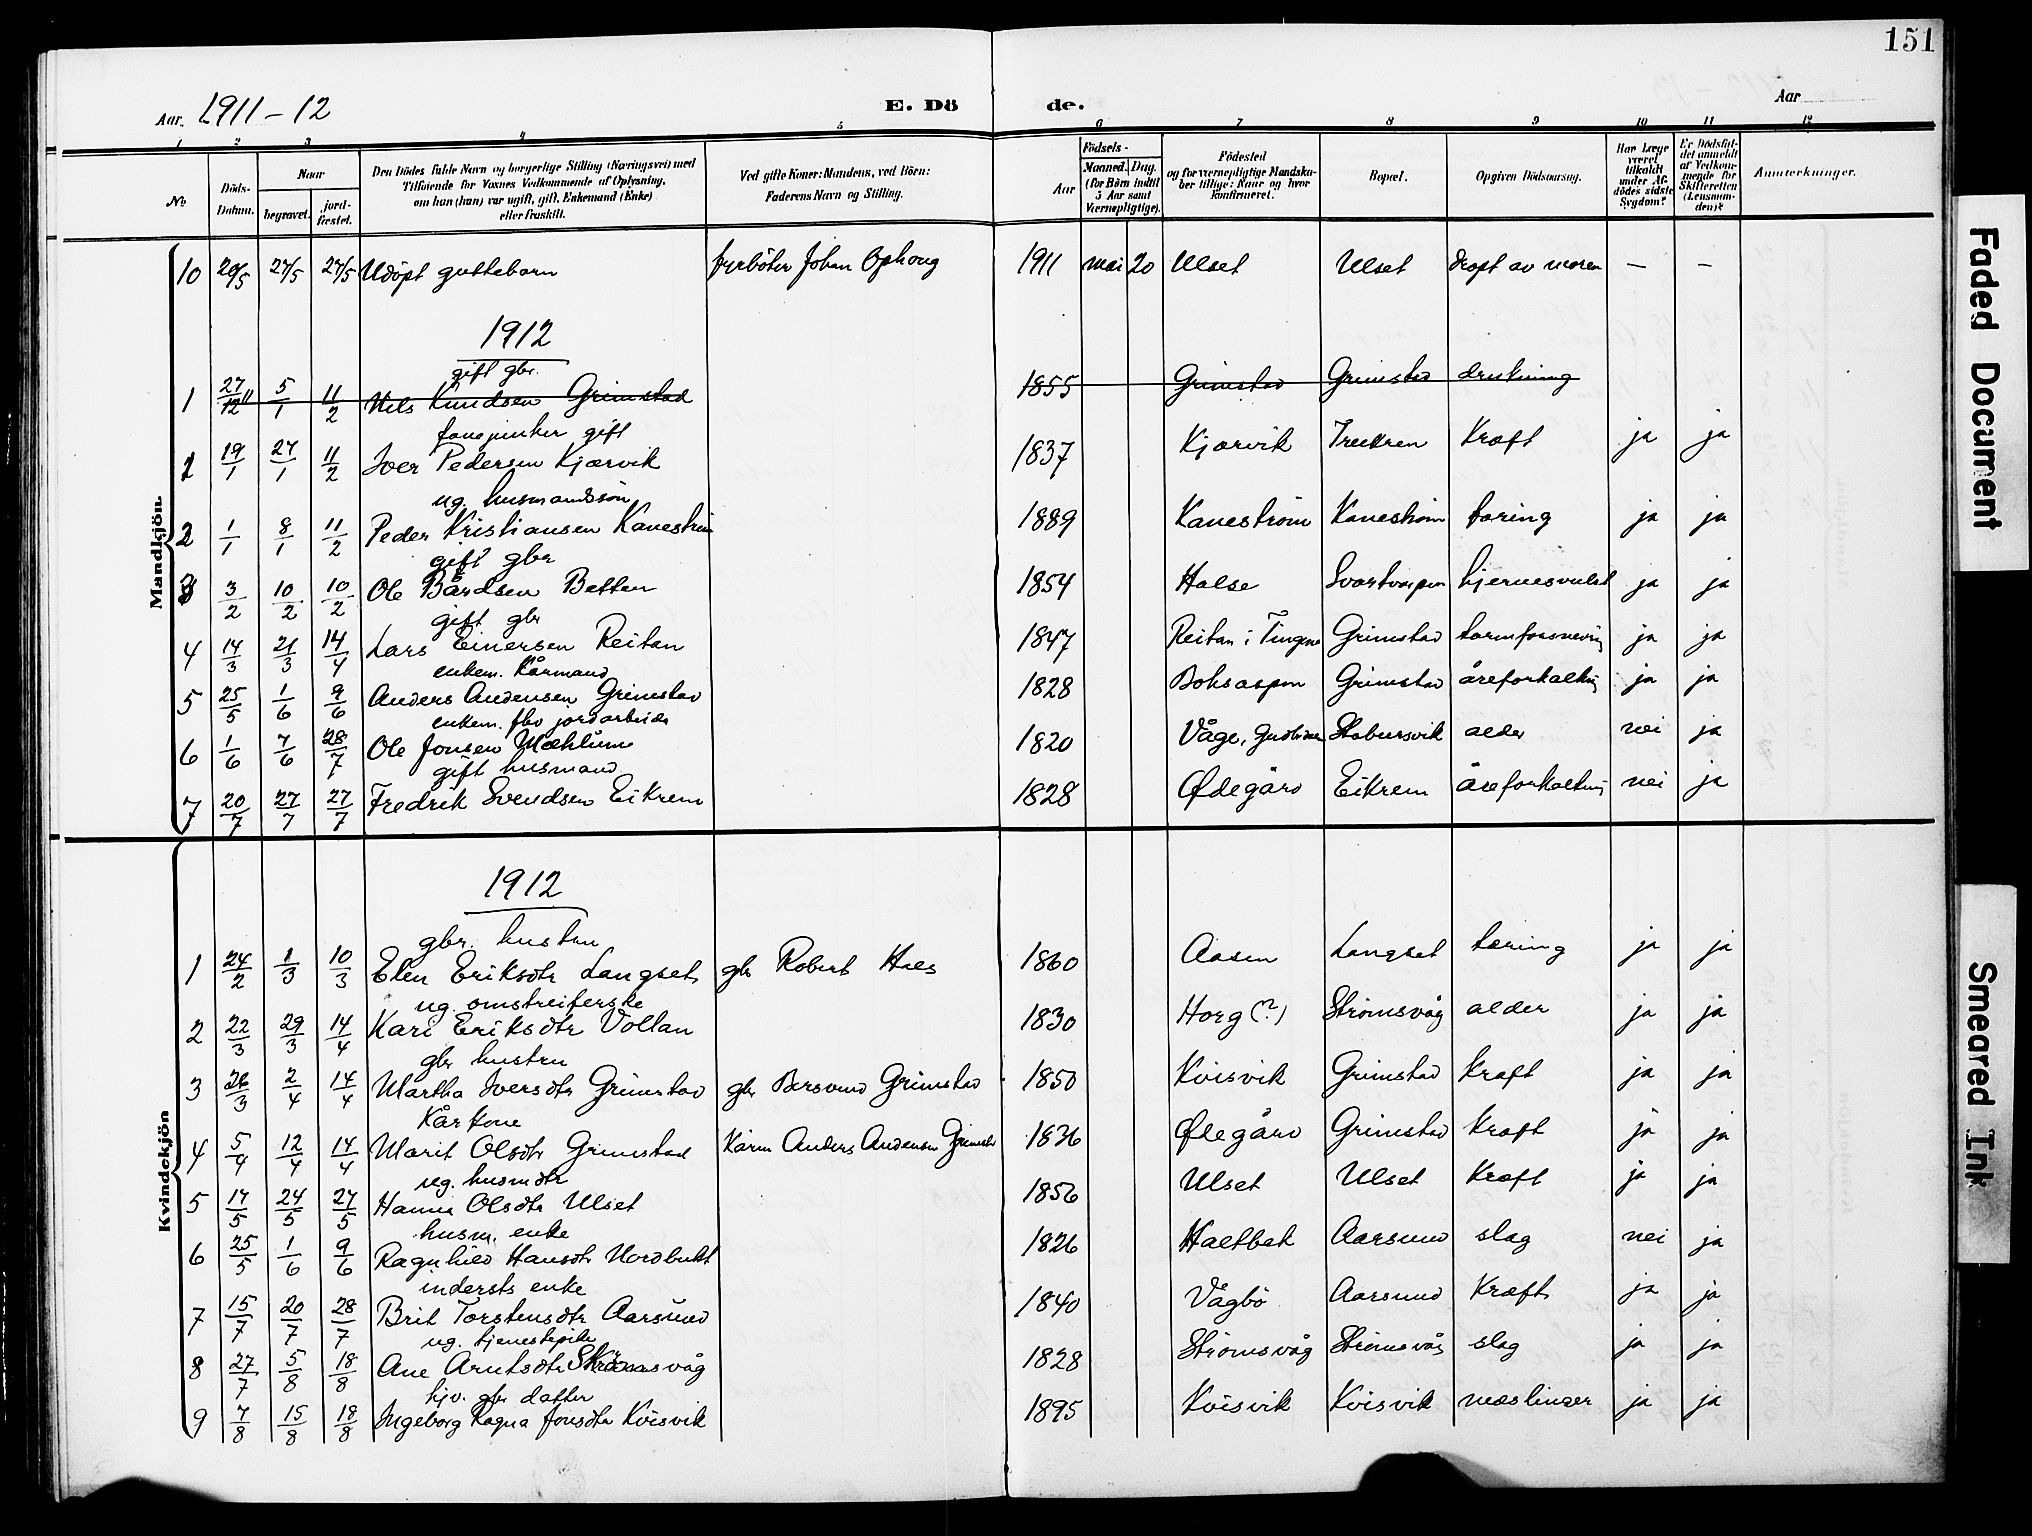 151
Aar. 1911-12
E. Dö de.
Aar
1 2 3 4 5 6 7 8 9 10 11 12
No
Döds-Datum.
Naar
begravet.
jord-fæstet.
Den Dödes fulde Navn og borgerlige Stilling (Næringsvei) med
Tilföiende for Voxnes Vedkommende af Oplysning,
om hun (han) var ugift, gift, Enkemand (Enke)
eller fraskilt.
Ved gifte Koner: Mandens, ved Börn:
Faderens Navn og Stilling.
Aar
Födsels-
Maaned. Dag.
(for Börn indtil
5 Aar samt
Værnepligtige).
Födested
og for værnepligtige Mandska-
ber tillige: Naar og hvor
konfirmeret.
Bopæl.
Opgiven Dödsaarsag.
Har Læge
været
tilkaldt
under Af-
dödes sidste
Sygdom?
Er Dödsfal-
det anmeldt
af Vedkom-
mende for
Skifteretten
(Lensman-
den)?
Anmerkninger.
Mandkjön.
10 20/5 27/5 27/5 Udöpt guttebarn fyrböter Johan Ophoug 1911 mai 20 Ulset Ulset dræpt av moren — —
1912
gift gbr.
1 27/12 11 5/1 11/2 Nils Knudsen Grimstad 1855 Grimstad Grimstad drukning
fanejunker gift
1 19/1 27/1 11/2 Iver Pedersen Kjærvik 1837 Kjærvik Kræft ja ja
ug. husmandssön
2 1/1 8/1 11/2 Peder Kristiansen Kaneström 1889 Kaneström Kaneström tæring ja ja
gift gbr
3 3/2 10/2 10/2 Ole Bårdsen Betten 1854 Halse hjernesvulst ja ja
gift gbr
4 14/3 21/3 14/4 Lars Einersen Reitan 1847 Reitan i Tingvo Grimstad tarmforsnevring ja ja
enkem. kårmand
5 25/5 1/6 9/6 Anders Andersen Grimstad 1828 Boksaspen Grimstad åreforkalkning ja ja
enkem. fhv jordarbeider
6 1/6 7/6 28/7 Ole Jonsen Mæhlum 1820 Våge, Gudbran Stabursvik alder nei ja
gift husmand
7 20/7 27/7 27/7 Fredrik Svendsen Eikrem 1828 Ødegård Eikrem åreforkalkning nei ja
Kvindekjön
1912
gbr. hustru
1 24/2 1/3 10/3 Elen Eriksdtr Langset gbr Robert Hals 1860 Aasen Langset tæring ja ja
ug. omstreiferske
2 22/3 29/3 14/4 Kari Eriksdtr Vollan 1830 Horg (?) Strömsvåg alder ja ja
gbr hustru
3 26/3 2/4 14/4 Martha Iversdtr Grimstad gbr Bersvend Grimstad 1850 Kvisvik Grimstad kræft ja ja
Kårkone
4 5/4 12/4 14/4 Marit Olsdtr Grimstad Kårm Anders Andersen Grimstad 1836 Ødegård Grimstad kræft ja ja
ug. husmdtr
5 17/5 24/5 27/5 Hanna Olsdtr Ulset 1856 Ulset Ulset Kræft ja ja
husm. enke
6 25/5 1/6 9/6 Ragnhild Hansdtr Nordbukt 1826 Haltbak Aarsund slag nei ja
indersts enke
7 15/7 20/7 28/7 Brit Torstensdtr Aarsund 1840 Vågbö Aarsund Kræft ja ja
ug. tjenestepike
8 27/7 5/8 18/8 Ane Arntsdtr Strömsvåg 1828 Strömsvåg Strömsvåg slag ja ja
hjv. gbr datter
9 7/8 15/8 18/8 Ingeborg Ragna Jonsdtr Kvisvik 1895 Kvisvik Kvisvik mæslinger ja ja
Faded Document
Smeared Ink